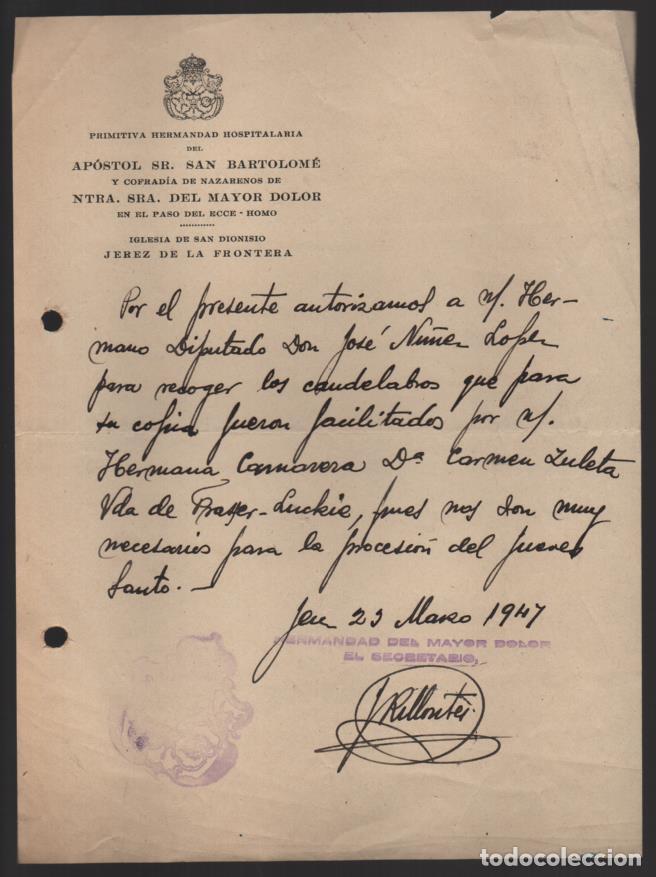 PRIMITIVA HERMANDAD HOSPITALARIA
DEL
APÓSTOL SR. SAN BARTOLOMÉ
Y COFRADÍA DE NAZARENOS DE
NTRA. SRA. DEL MAYOR DOLOR
EN EL PASO DEL ECCE - HOMO
IGLESIA DE SAN DIONISIO
JEREZ DE LA FRONTERA
Por el presente autorizamos a n/. Her-
mano Diputado Don José Núñez Lopez
para recoger los candelabros que para
su copia fueron facilitados por n/.
Hermana Camarera Dª Carmen Zuleta
Vda de Fraser-Luckie, pues nos son muy
necesarios para la procesión del Jueves
Santo.-
23 Marzo 1947
HERMANDAD DEL MAYOR DOLOR
EL SECRETARIO,
todocoleccion